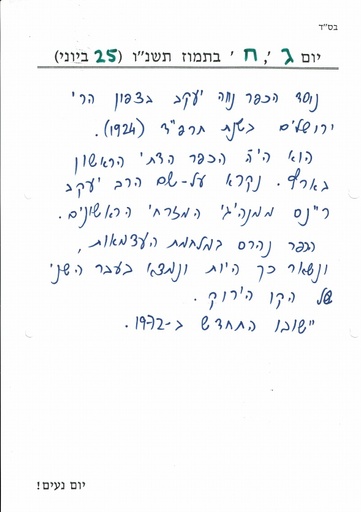 בס"ד
יום ג', ח' בתמוז תשנ"ו (25 ביוני)
נוסד הכפר נווה יעקב בצפון הרי
ירושלים בשנת תרפ"ד (1924).
הוא היה הכפר הדתי הראשון
בארץ. נקרא על-שם הרב יעקב
ריינס ממנהיגי המזרחי הראשונים.
הכפר נהרס במלחמת העצמאות,
ונשאר כך היות ונמצא בעבר השני
של הקו הירוק.
יישובו התחדש ב-1972.
יום נעים!